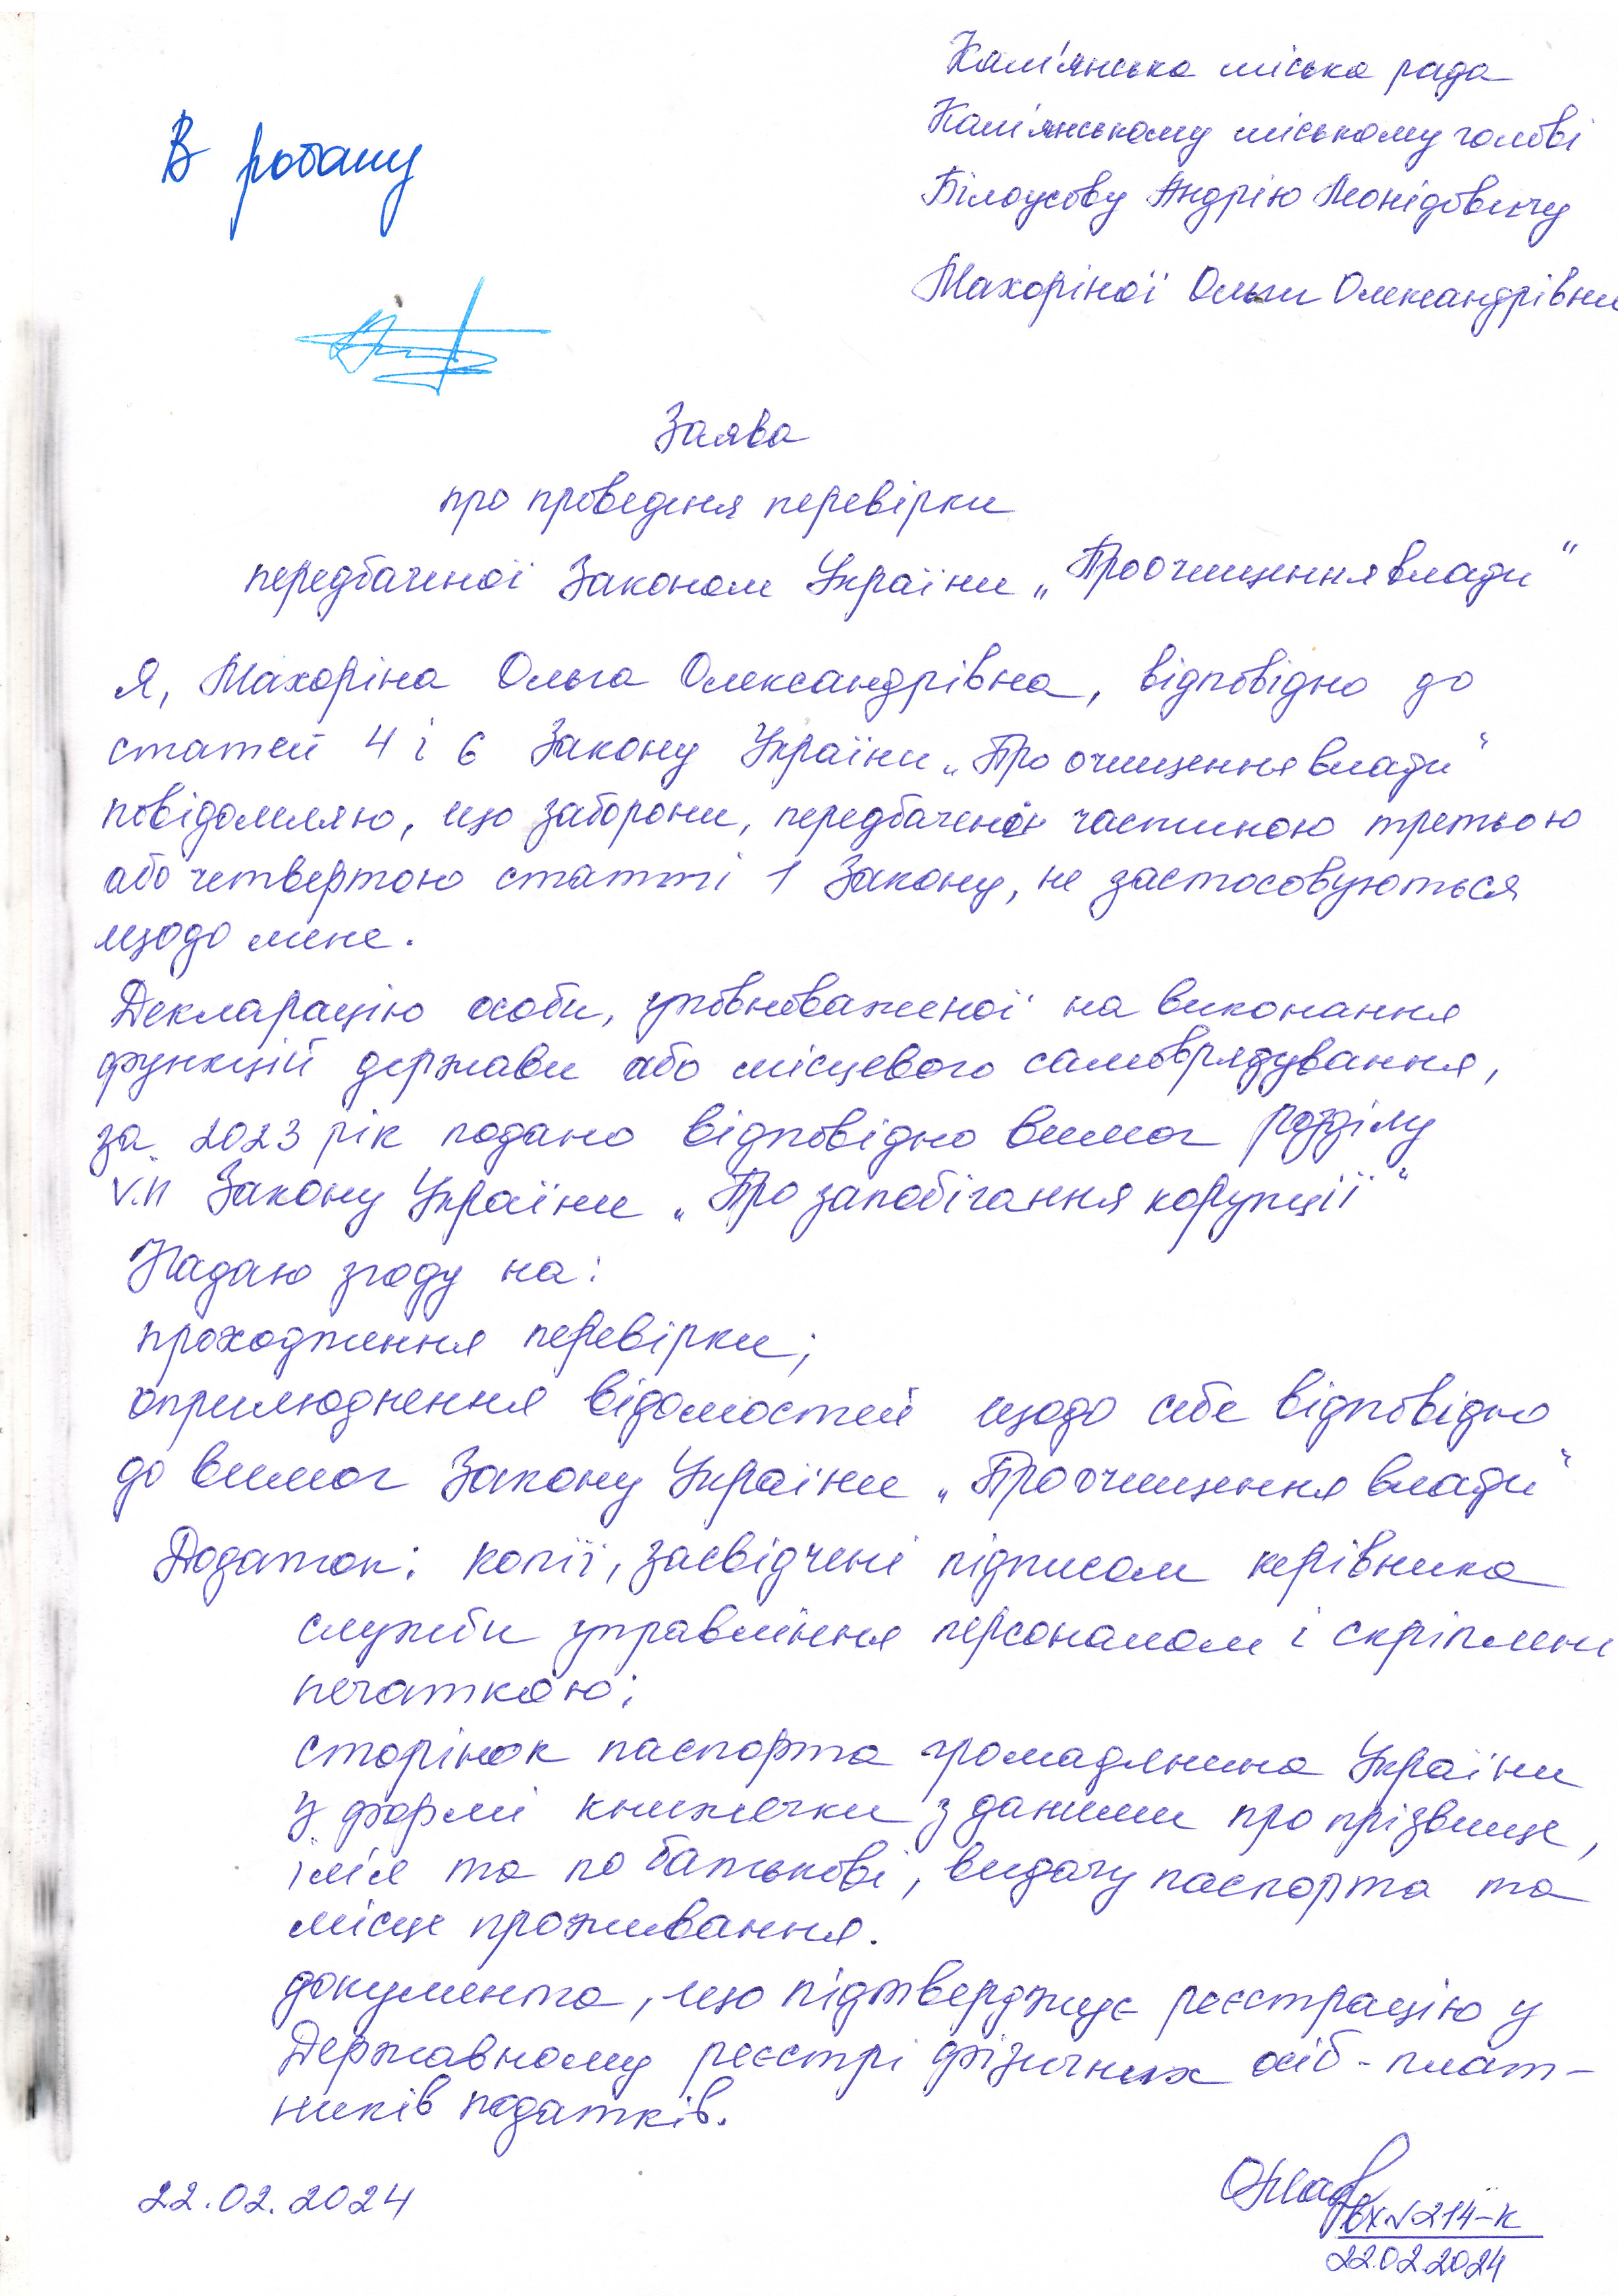 Кам'янська міська рада
Кам'янському міському голові
Білоусову Андрію Леонідовичу
Махоріної Ольги Олександрівни
В роботу
Заява
про проведеня перевірки
передбаченої Законом України „Про очищення влади"
Я, Махоріна Ольга Олександрівна, відповідно до
статей 4 і 6 Закону України „Про очищення влади"
повідомляю, що заборони, передбачені частиною третьою
або четвертою статті 1 Закону, не застосовуються
щодо мене.
Декларацію особи, уповноваженої на виконання
функцій держави або місцевого самоврядування,
за 2023 рік подано відповідно вимог розділу
V.II Закону України „Про запобігання корупції"
Надаю згоду на:
проходження перевірки;
оприлюднення відомостей щодо себе відповідно
до вимог Закону України „Про очищення влади"
Додаток: копії, засвідчені підписом керівника
служби управління персоналом і скріплені
печаткою:
сторінок паспорта громадянина України
у формі книжечки з даними про прізвище,
ім'я та по батькові, видачу паспорта та
місце проживання.
документа, що підтверджує реєстрацію у
Державному реєстрі фізичних осіб - плат-
ників податків.
22.02.2024
Вх№214-К
22.02.2024